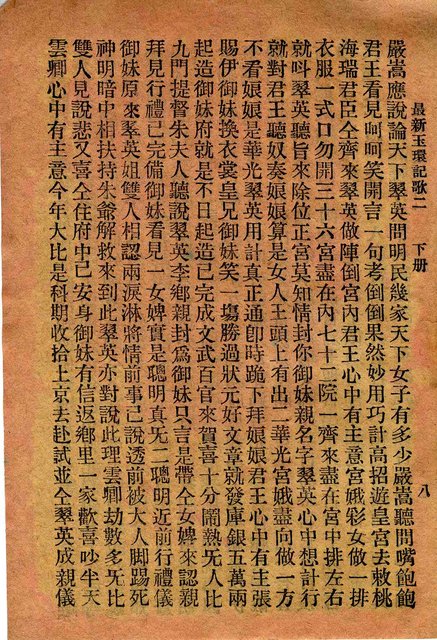 最新玉環記歌二 下册 八
嚴嵩應說論天下翠英問明民幾家天下女子有多少嚴嵩聽問嘴飽飽
君王看見呵呵笑開言一句考倒倒果然妙用巧計高招遊皇宮去敕桃
海瑞君臣仝齊來翠英做陣倒宮內君王心中有主意宮娥彩女做一排
衣服一式口勿開三十六宮盡在內七十二院一齊來盡在宮中排左右
就呌翠英聽旨來除位正宮莫知情封你御妹親名字翠英心中想計行
就對君王聽奴奏娘娘算是女人王頭上有出二華光宮娥盡向做一方
不看娘娘是華光翠英用計真正通卽時跪下拜娘娘君王心中有主張
賜伊御妹換衣裳皇兄御妹笑一塲勝過狀元好文章就發庫銀五萬兩
起造御妹府就是不日起造已完成文武百官來賀喜十分鬧熱旡人比
九門提督朱夫人聽說翠英李鄉親封爲御妹只言是帶仝女婢來認親
拜見行禮已完備御妹看見一女婢實是聰明真旡二聰明近前行禮儀
御妹原來翠英姐雙人相認兩淚淋將情前事已說透前被大人脚踢死
神明暗中相扶持朱爺解救來到此翠英亦對說此理雲卿劫數多旡比
雙人見說悲又喜仝住府中已安身御妹有信返鄉里一家歡喜吵半天
雲卿心中有主意今年大比是科期收拾上京去赴試並仝翠英成親儀